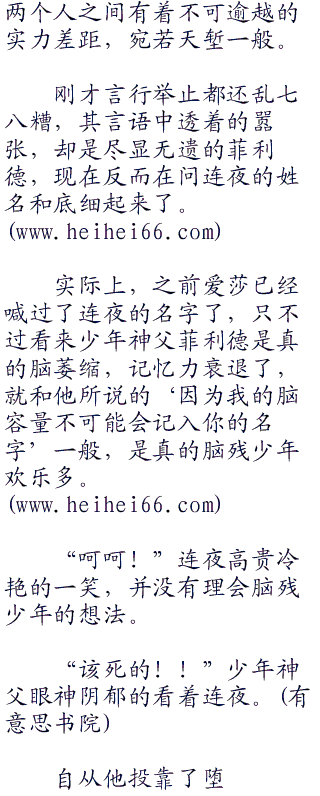 两个人之间有着不可逾越的
实力差距，宛若天堑一般。
刚才言行举止都还乱七
八糟，其言语中透着的嚣
张，却是尽显无遗的菲利
德，现在反而在问连夜的姓
名和底细起来了。
(www.heihei66.com)
实际上，之前爱莎已经
喊过了连夜的名字了，只不
过看来少年神父菲利德是真
的脑萎缩，记忆力衰退了，
就和他所说的‘因为我的脑
容量不可能会记入你的名
字’一般，是真的脑残少年
欢乐多。
(www.heihei66.com)
“呵呵！”连夜高贵冷
艳的一笑，并没有理会脑残
少年的想法。
“该死的！！”少年神
父眼神阴郁的看着连夜。(有
意思书院)
自从他投靠了堕